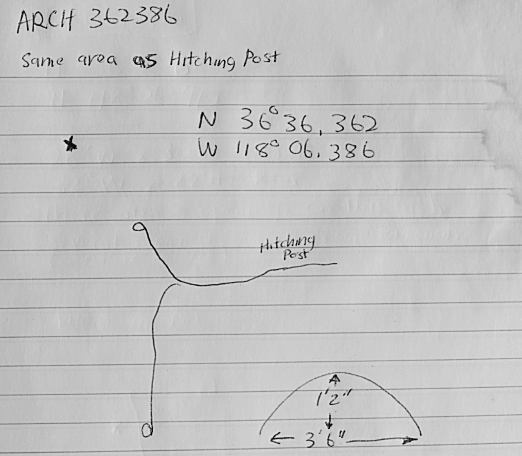 ARCH 362386
Same area as Hitching Post
N 36° 36, 362
W 118° 06. 386
Hitching
Post
1'2"
3'6"